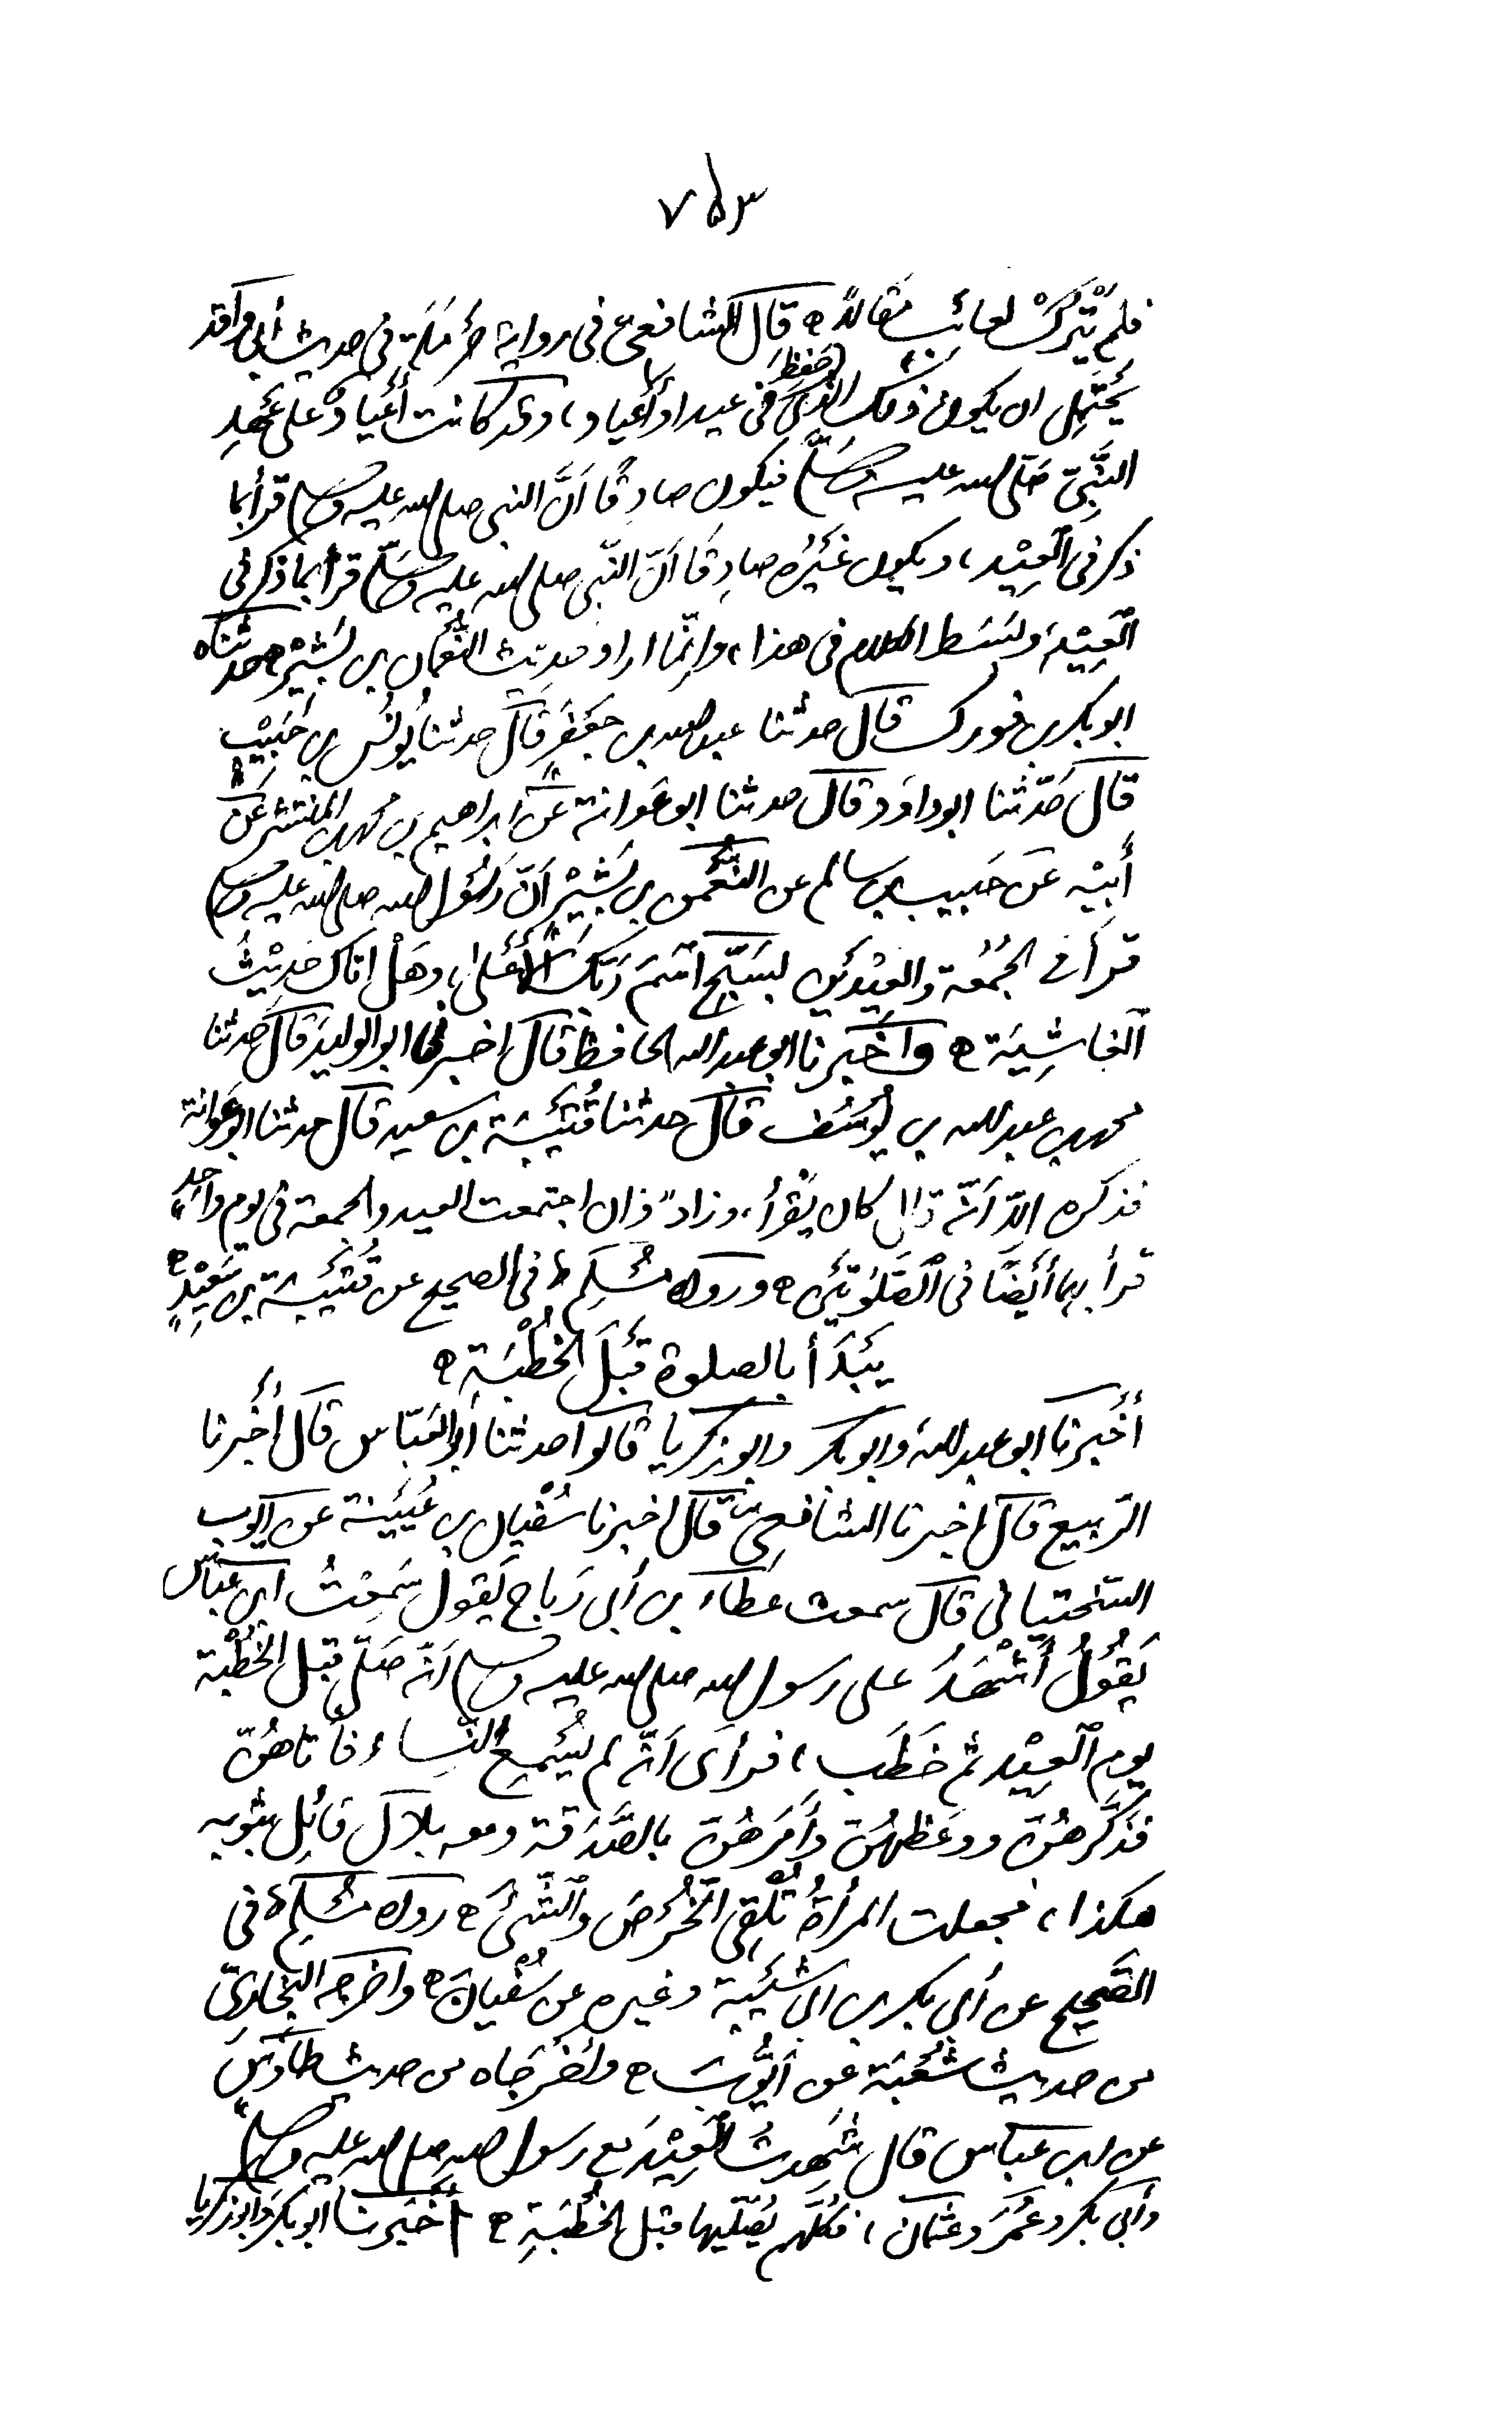 ٧٥٣
فلم يَتْرُكْ لعائب مَقالاً ه قال الشافعي في رواية حَرْمَلَة في حديث أبي واقد
يَحْتَمِل ان يكون ذلك الذى حَفِظَ في عيد او أَعْياد، وقد كانت أَعْيادٌ على عَهْدِ
النَّبِيّ صَلّى الله عليه وسَلَّم فيكون صادِقًا اَنَّ النبى صلى الله عليه وسلم قرأ بما
ذكر في العِيْد، ويكون غَيْرُه صادِقًا اَنّ النّبى صلى الله عليه وسَلّم قرأ بما ذكر في
العِيْد، وبَسَط الكلام في هذا، وإنّما اراد حديث النُّعْمان بن بَشِيْر ه حدثناه
ابوبكر بن فورك قال حدثنا عبد الله بن جَعْفَر قال حدثنا يُونُس بن حَبِيْب
قال حَدّثنا ابوداوَد قال حدثنا ابوعَوانة عَنْ ابراهيم بن محمد بن المنتشر عَنْ
أَبِيْه عَن حَبيب بن سالم عن النُّعْمٰن بن بَشِيْر اَنّ رَسُوْل الله صلى الله عليه وسلم
قرأ في الجُمُعَة والعِيْدَيْن بسَبِّحِ اسْمَ رَبِّكَ الأَعْلىٰ، وهَلْ اتاك حَدِيْثُ
الغاشِيَة ه وأخْبرنا ابوعبدالله الحافظ قال اخبرنا ابوالوليد قال حدثنا
محمد بن عبدالله بن يُوسُف قال حدثنا قُتَيْبَة بن سعيد قال حدثنا ابوعَوانة
فذكره الاّ اَنّه قال كان يَقْرأ، وزاد "وان اجتمعت العيد والجمعة في يوم واحِدٍ
قرأ بهما أَيْضًا في الصَّلٰوتَيْن ه ورواه مُسْلِم في الصحيح عن قُتَيْبَة بن سَعِيْدٍ ه"
يَبْدَأ بالصلوة قَبْلَ الخُطْبَةِ ه
أَخْبرنا ابوعبدالله وابوبكر وابوزكريا قالوا حدثنا أبوالعَبّاس قال أَخْبرنا
الرّبيع قال اخبرنا الشافعِي قال اخبرنا سُفْيان بن عُيَيْنة عن ايوب
السّختيانى قال سمعت عَطاء بن أبى رَباح يَقول سَمِعْتُ ابن عبّاس
يَقُوْلُ أَشْهَدُ على رسول الله صلى الله عليه وسلم اَنّه صَلّى قبل الخُطْبَة
يوم العِيْد ثم خَطَبَ، فرأى اَنّه لم يُسْمِعِ النِّساء فأَتاهُنّ
فذَكَّرهُنّ ووعَظهُنّ وأَمَرَهُنّ بالصَّدَقة ومعه بلال قائِل بثوبه
هكذا، فجعلت المرأةُ تُلْقِى الخُرْصَ والشَّئَ ه رواه مُسْلِم في
الصَّحِيْح عن أبى بكر بن ابى شَيْبَة وغيره عن سُفْيانَ ه واخرجه البُخارِىّ
من حديث شُعْبَة عن اَيُّوبَ ه واَخْرَجاه من حديث طاَوُسَ
عن ابن عبّاس قال شَهِدتُ العِيْدَ مع رسول الله صلى الله عليه وسلم
وأبى بكر وعُمَرَ وعثمان، فكلّهم يُصَلّيها قبل الخُطْبَةِ ه أَخْبَرنا ابوبكر وابوزكريا